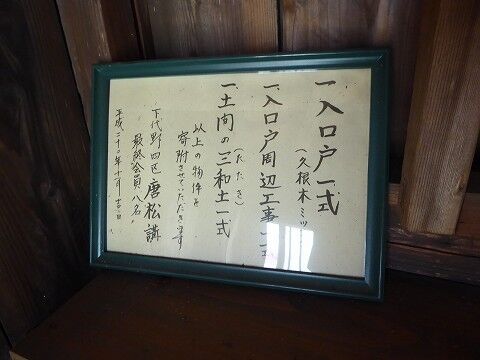 一、入口戸一式
(久根木ミツ
一、入口戸周辺工事一式
(たたき)
一、土間の三和土一式
以上の物件を
寄附させていただきます
下代野四区 唐松講
最終会員八名
平成二十年十月